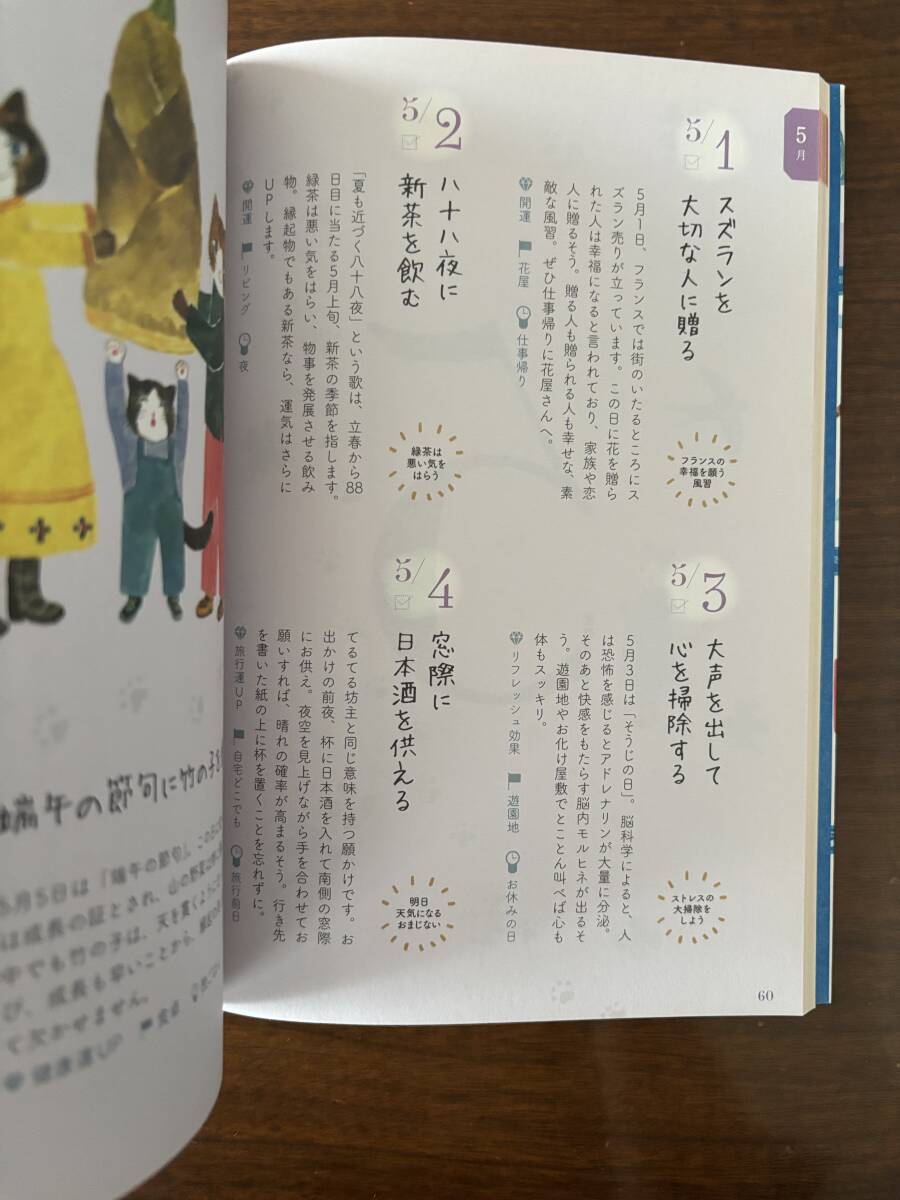 5月
5/1
スズランを
大切な人に贈る
フランスの
幸福を願う
風習
5月1日、フランスでは街のいたるところにス
ズラン売りが立っています。この日に花を贈ら
れた人は幸福になると言われており、家族や恋
人に贈るそう。贈る人も贈られる人も幸せな、素
敵な風習。ぜひ仕事帰りに花屋さんへ。
開運 花屋 仕事帰り
5/2
八十八夜に
新茶を飲む
緑茶は
悪い気を
はらう
「夏も近づく八十八夜」という歌は、立春から88
日目に当たる5月上旬、新茶の季節を指します。
緑茶は悪い気をはらい、物事を発展させる飲み
物。縁起物でもある新茶なら、運気はさらに
UPします。
開運 リビング 夜
5/3
大声を出して
心を掃除する
ストレスの
大掃除を
しよう
5月3日は「そうじの日」。脳科学によると、人
は恐怖を感じるとアドレナリンが大量に分泌。
そのあと快感をもたらす脳内モルヒネが出るそ
う。遊園地やお化け屋敷でとことん叫べば心も
体もスッキリ。
リフレッシュ効果 遊園地 お休みの日
5/4
窓際に
日本酒を供える
明日
天気になる
おまじない
てるてる坊主と同じ意味を持つ願かけです。お
出かけの前夜、杯に日本酒を入れて南側の窓際
にお供え。夜空を見上げながら手を合わせてお
願いすれば、晴れの確率が高まるそう。行き先
を書いた紙の上に杯を置くことを忘れずに。
旅行運UP 自宅どこでも 旅行前日
60
端午の節句に竹の子を
5月5日は「端午の節句」。この
は成長の証とされ、山の野菜
中でも竹の子は、天を貫くように
び、成長も早いことから、
て欠かせません。
健康運UP 食卓